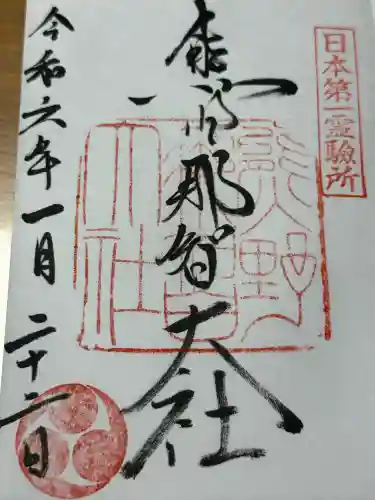 日本第一霊驗所
奉拝
熊野
那智
大社
那智大社
令和六年一月二十二日